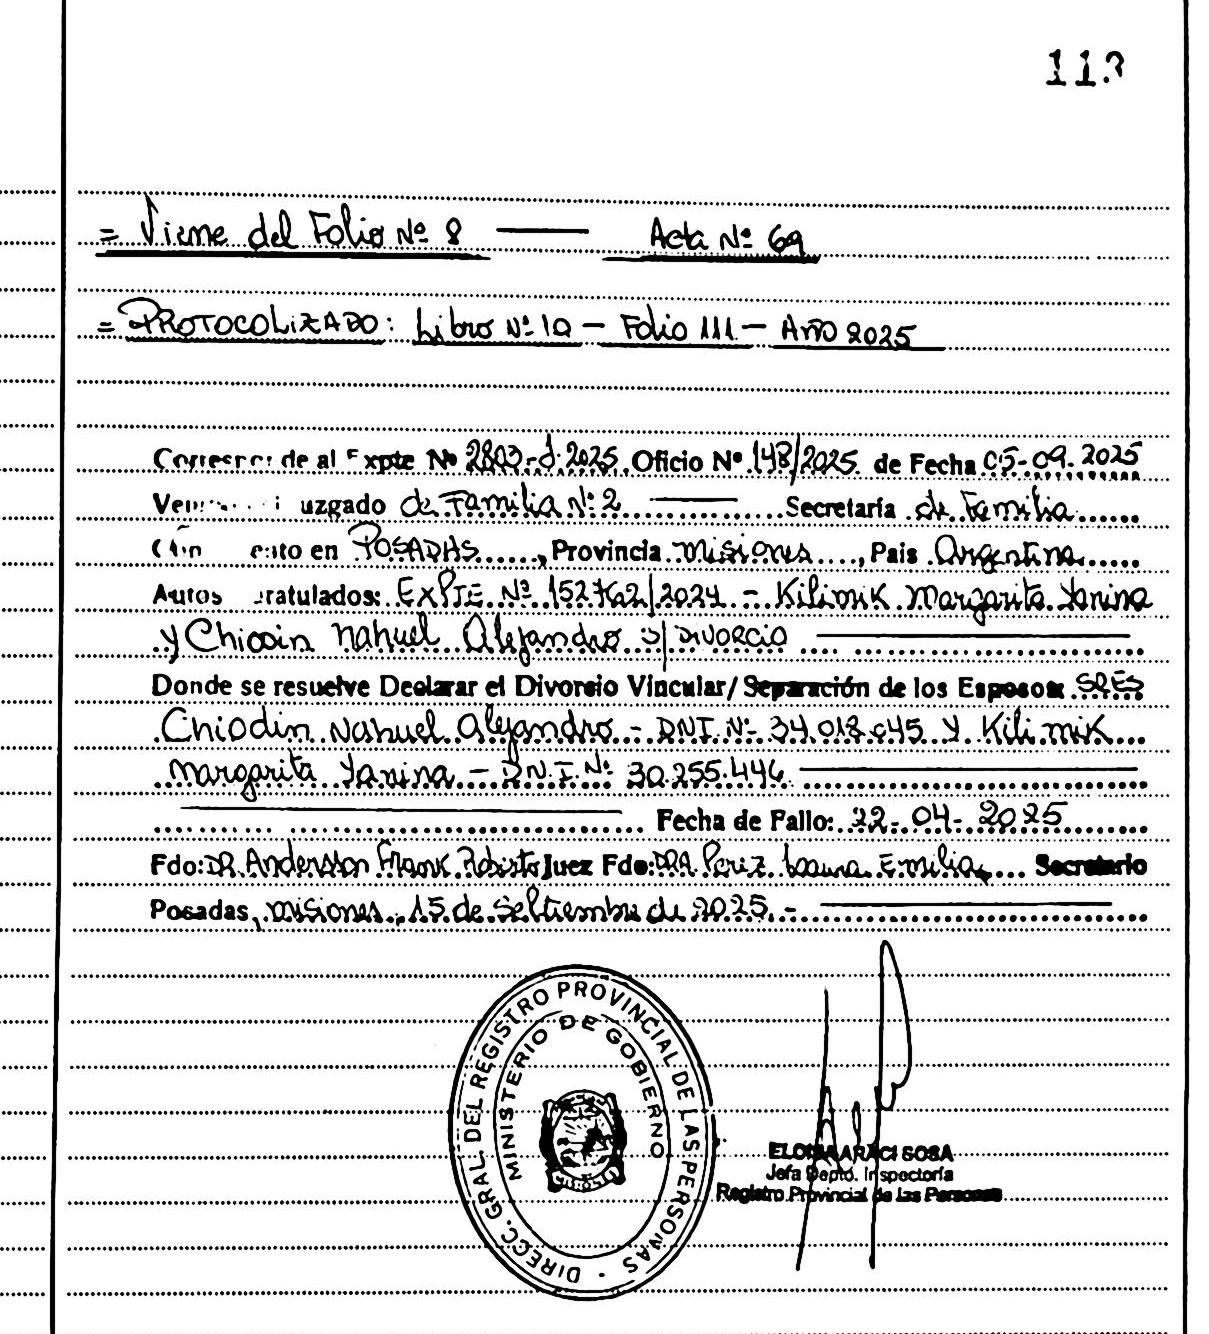 = Viene del Folio Nº 8 — Acta Nº 69
= PROTOCOLIZADO: Libro Nº 10 - Folio 111 - Año 2025
de al Expte Nº 2803-J-2025 Oficio Nº 148/2025 de Fecha 05-09-2025
uzgado de Familia Nº 2 Secretaría de Familia
en POSADAS, Provincia Misiones, Pais Argentina
Autos ratulados: EXPTE Nº 152762/2024 - Kilimik Margarita Yanina
y Chiodin Nahuel Alejandro S/DIVORCIO
Donde se resuelve Declarar el Divorcio Vincular/Separación de los Esposos: SRES
Chiodin Nahuel Alejandro - DNI Nº 34.018. Y Kilimik
Margarita Yanina - D.N.I. Nº 30.255.446
Fecha de Fallo: 22-04-2025
Fdo: DR. Andersson Frank Roberto Juez Fdo: DRA. Perez Laura Emilia Secretario
Posadas, Misiones, 15 de Septiembre de 2025.-
DIRECC. GRAL. DEL REGISTRO PROVINCIAL DE LAS PERSONAS
MINISTERIO DE GOBIERNO
ARACI SOSA
Jefa Depto. Inspectoría
Registro Provincial de las Personas